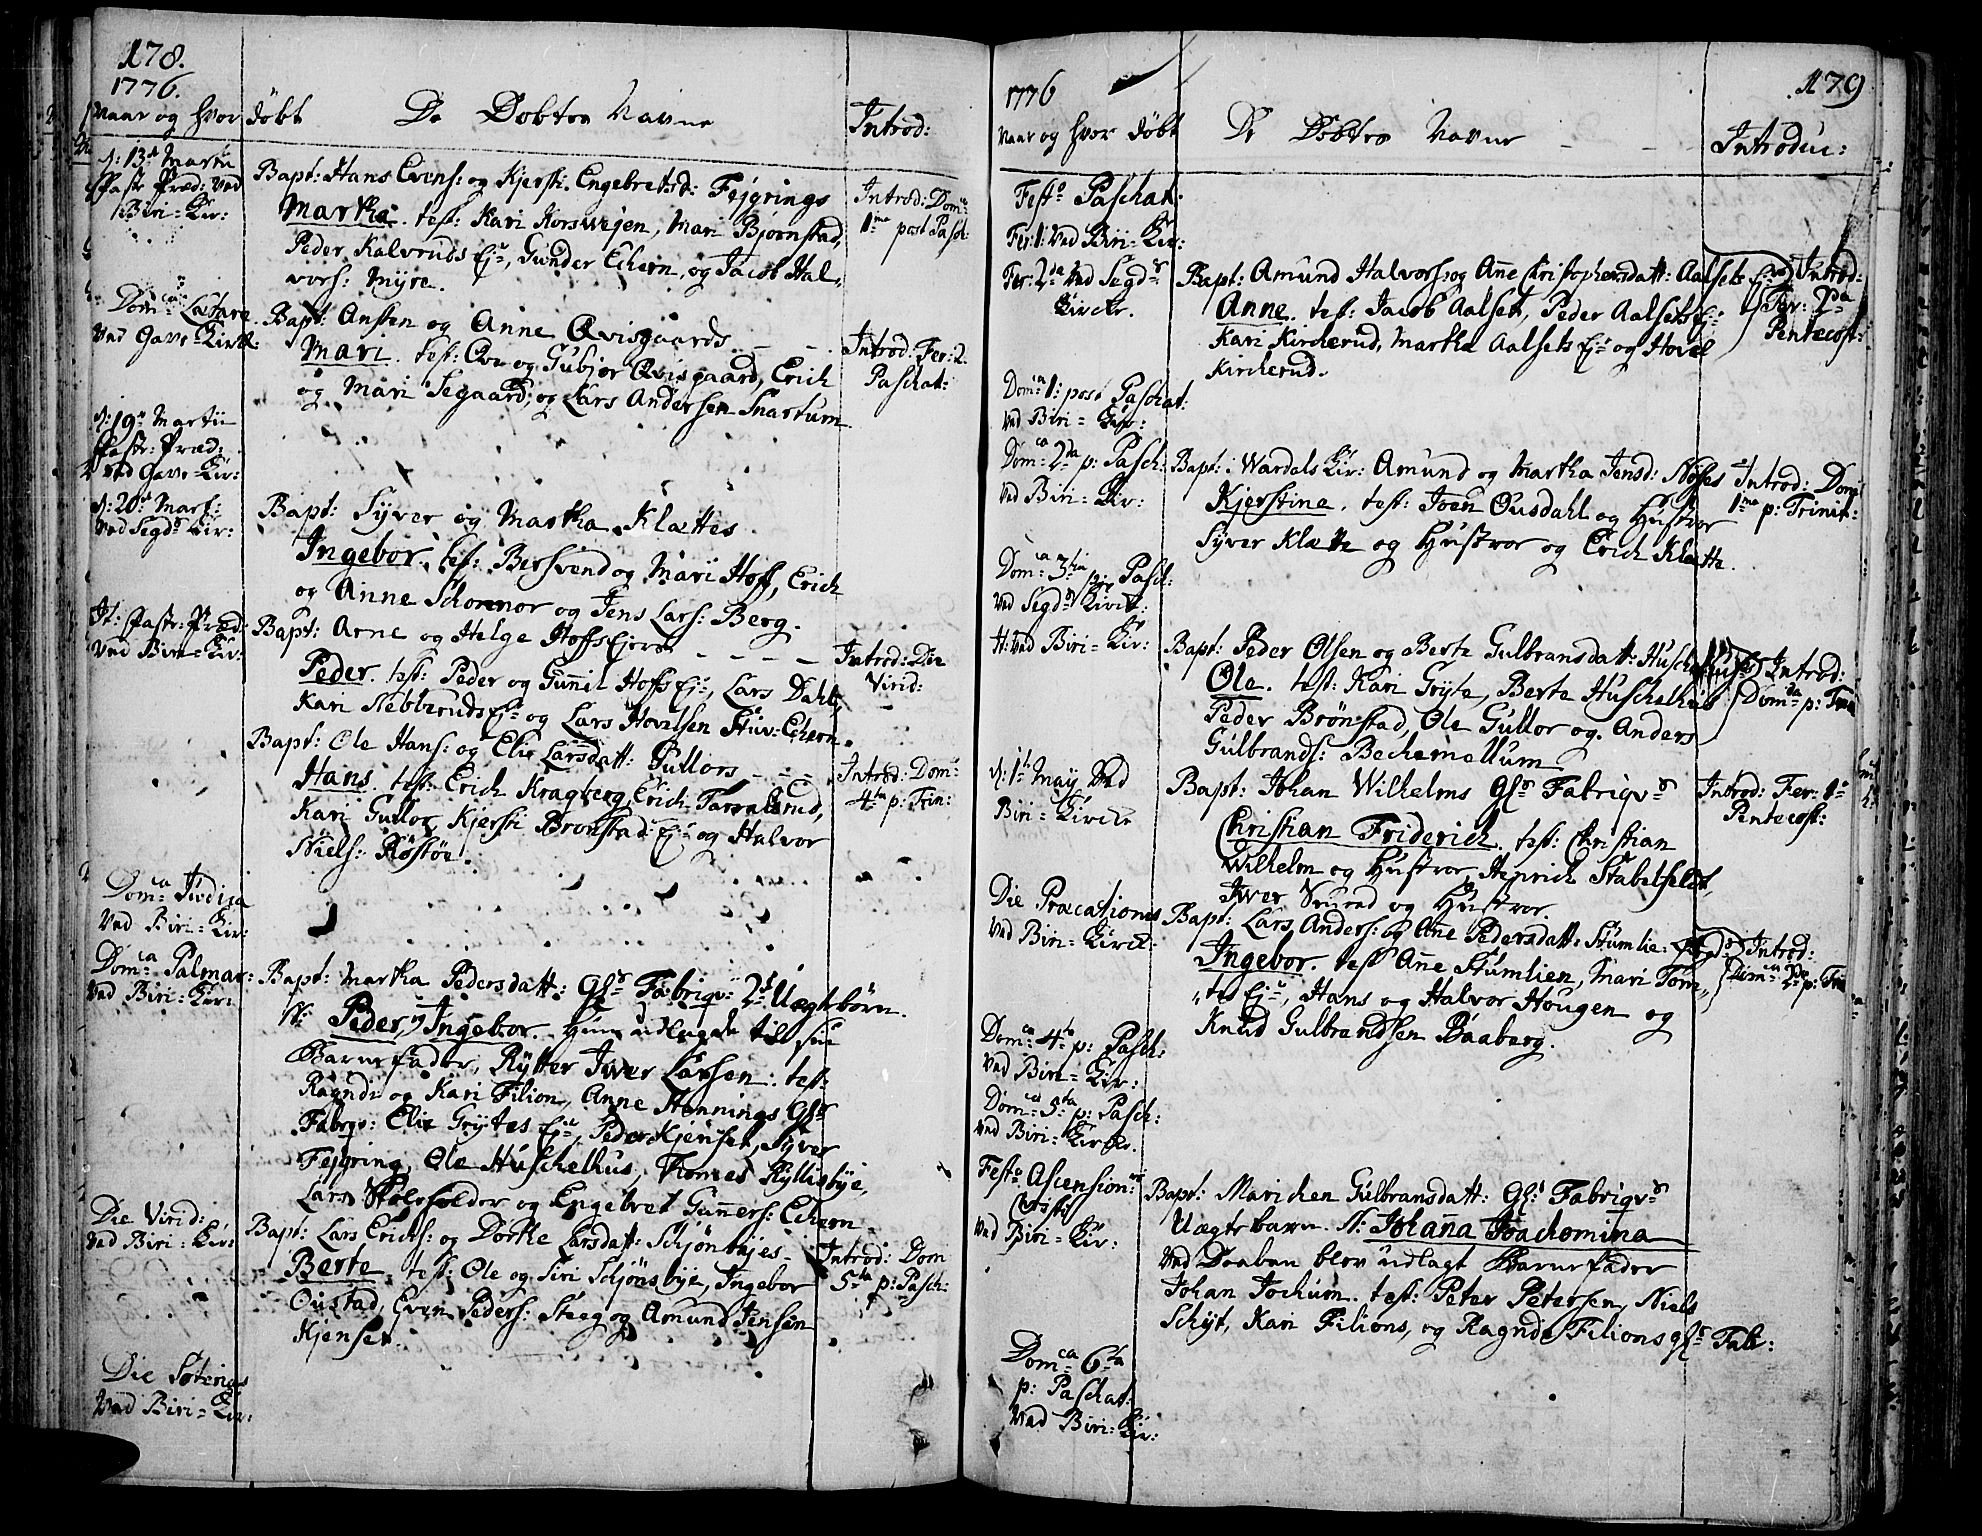 178.
1776.
Naar og hvor døbt
De Døbtes Navne
Introd:
d: 13de Martii
Past: Præd: Ved
Biri-Kir:
Bapt: Hans Evens: og Kjersti Engebretsd: Fejgrings
Martha. test: Kari Korsvejen, Mari Bjørnstad,
Peder Kalvruds Ejr, Gunder Echern, og Jacob Hal-
vors: Myre.
Introd: Domca
1ma post Pasch:
Domca Lætare
Ved Gave-Kirk:
Bapt: Ansten og Anne Qvisgaards
Mari. test: Ove og Gubjør Qvisgaard, Erich
og Mari Segaard, og Lars Andersen Snartum
Introd: Fer: 2.
Paschat:
d: 19de Martii
Past: Præd:
Ved Gave-Kir:
d: 20de Mart:
Ved Segds Kir:
Bapt: Syver og Martha Klættes
Ingebor. test: Bersvend og Mari Hoff, Erich
og Anne Schonnor og Jens Lars: Berg.
It: Past: Præd:
Ved Biri-Kir:
Bapt: Arne og Helge Hoffs Ejere
Peder. test: Peder og Gunnil Hoffs Ejr, Lars Dahl,
Kari Nebberuds Ejr og Lars Hovelsen Huv: Echern.
Introd: Die
Virid:
Bapt: Ole Hans: og Elie Larsdatt: Gullors
Hans. test: Erich Kragberg, Erich Tarralsrud,
Kari Gullor, Kjersti Brønstad Ejr og Halvor
Niels: Røstøe.
Introd: Domca
4ta p: Trin:
Domca Judica
Ved Biri-Kir:
Domca Palmar:
Ved Biri-Kir:
Bapt: Martha Pedersdatt: Glr Fabriqv: 2de Uægte børn.
N: Peder, og Ingebor. Hun udlagde til sin
Barnefader, Rytter Iwer Larsen. test:
Ragndi og Kari Filion, Anne Hennings Glr
Fabrqv: Elie Grytes Ejr, Peder Kjenset, Syver
Fejgring, Ole Huschelhus, Thomes Hyllibye,
Lars Skoleholder og Engebret Gunners: Echern
Die Virid:
Ved Biri-Kir:
Bapt: Lars Erichs: og Dorthe Larsdatt: Schjønsbyes
Berte. test: Ole og Siri Schjønsbye, Ingebor
Oustad, Even Peders: Steeg og Amund Jensen
Kjenset.
Introd: Dom
5ta p: Pasch:
Die Soterias
Ved Biri-Kir:
179
1776
Naar og hvor døbt
De Døbtes Navne
Introduc:
Festo Paschat:
Fer: 1: Ved Biri-Kir:
Fer: 2da Ved Segds
Kircke.
Bapt: Amund Halvors: og Anne Christophersdatt: Aalsets Ejr
Anne. test: Jacob Aalset, Peder Aalsets Ejr
Kari Kircherud, Martha Aalsets Ejr og Hovel
Kircherud.
Introd:
Fer: 2da
Pentecost:
Domca 1: post Paschat:
Ved Biri-Kir:
Domca 2da p: Pasch:
Ved Biri-Kir:
Bapt: i Wardals Kir: Amund og Martha Jensd: Nøses
Kjerstine. test: Joen Ousdahl og Hustroe
Syver Klætte og Hustroe og Erich Klætte.
Introd: Dom
1ma p: Trinit:
Domca 3tia p: Pasch:
Ved Segds Kirck:
It: Ved Biri-Kir:
Bapt: Peder Olsen og Berte Gulbransdatt: Huschelhus
Ole. test: Kari Gryte, Berte Huschelhus
Peder Brønstad, Ole Gullor og Anders
Gulbrands: Bechemellum
Introd:
Domca p: Trin
d: 1te May Ved
Biri-Kircke
Bapt: Johan Wilhelms Glr Fabriqvs
Christian Friderich. test: Christian
Wilhelm og Hustroe, Heinrich Stabelfeldt,
Iwer Svurad og Hustroe.
Introd: Fer: 1
Pentecost:
Die Præcationes
Ved Biri-Kirck:
Bapt: Lars Anders: og Ane Pedersdatt: Stumlie
Ingebor. test: Ane Stumlien, Mari Tom-
tes Ejr, Hans og Halvor Hougen og
Knud Gulbrandsen Baaberg.
Introd:
Domca 2da p: Trin
Domca 4ta p: Pasch:
Ved Biri-Kir:
Domca 5ta p: Pasch:
Ved Biri-Kircke.
Festo Ascension:
Christi
Ved Biri-Kir:
Bapt: Marichen Gulbransdatt: Glr Fabriqvs
Uægte barn. N: Johanna Joachomina
Ved Daaben blev udlagt Barnefader
Johan Jochum. test: Peter Petersen, Niels
Schyt, Kari Filions, og Ragndi Filions Glr Fab:
Domca 6ta
p: Paschat:
Ved Biri-Kir: